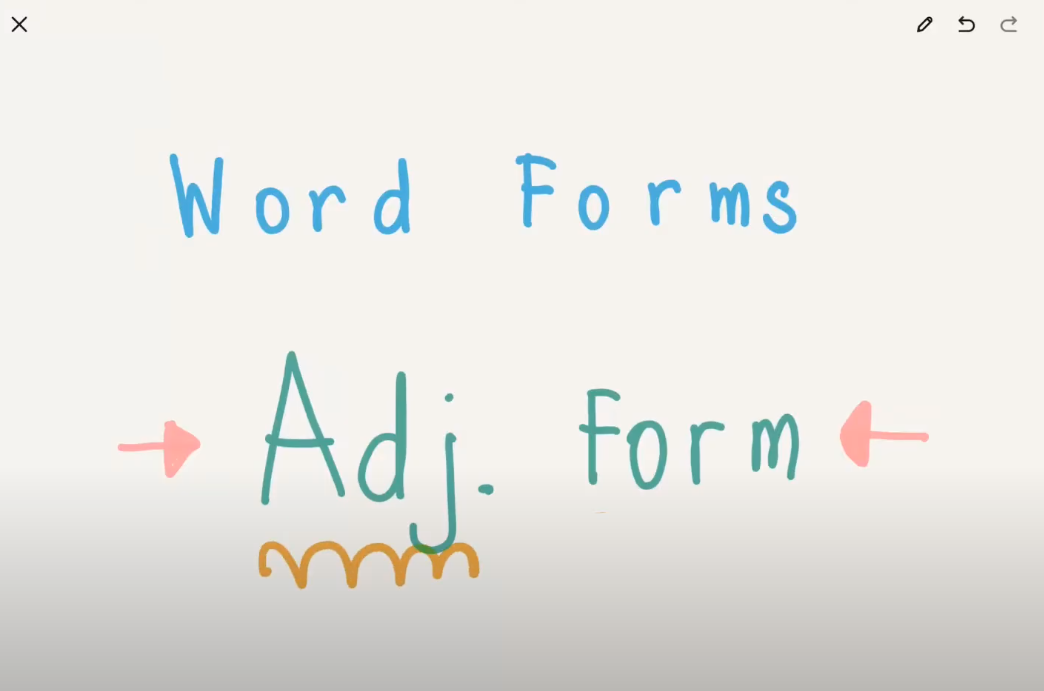 Word Forms
Adj. Form